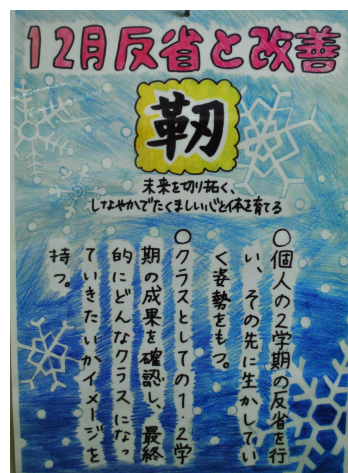 12月反省と改善
靭
未来を切り拓く、
しなやかでたくましい心と体を育てる
○個人の2学期の反省を行
い、その先に生かしてい
く姿勢をもつ。
○クラスとしての1・2学
期の成果を確認し、最終
的にどんなクラスになっ
ていきたいかイメージを
持つ。